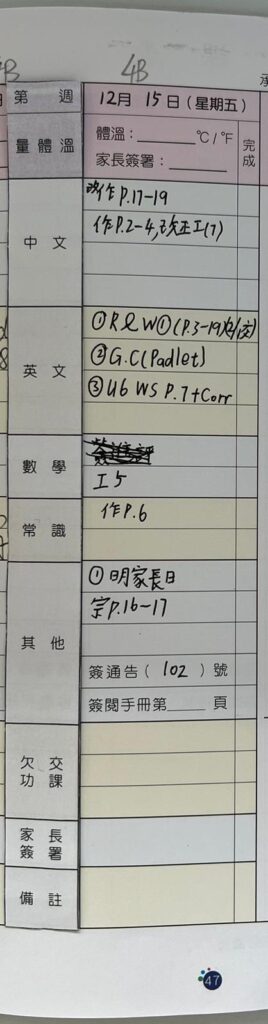 4B
第 週
12月 15日(星期五)
量體溫
體溫:______ ℃/℉
家長簽署:______
完成
中文
作P.17-19
作P.2-4,改正工(7)
英文
①R&W①(P.3-19)
②G.C(Padlet)
③U6 WS P.7+Corr
數學
工5
常識
作P.6
其他
①明家長日
宗P.16-17
簽通告(102)號
簽閱手冊第____頁
欠交
功課
家長
簽署
備註
47